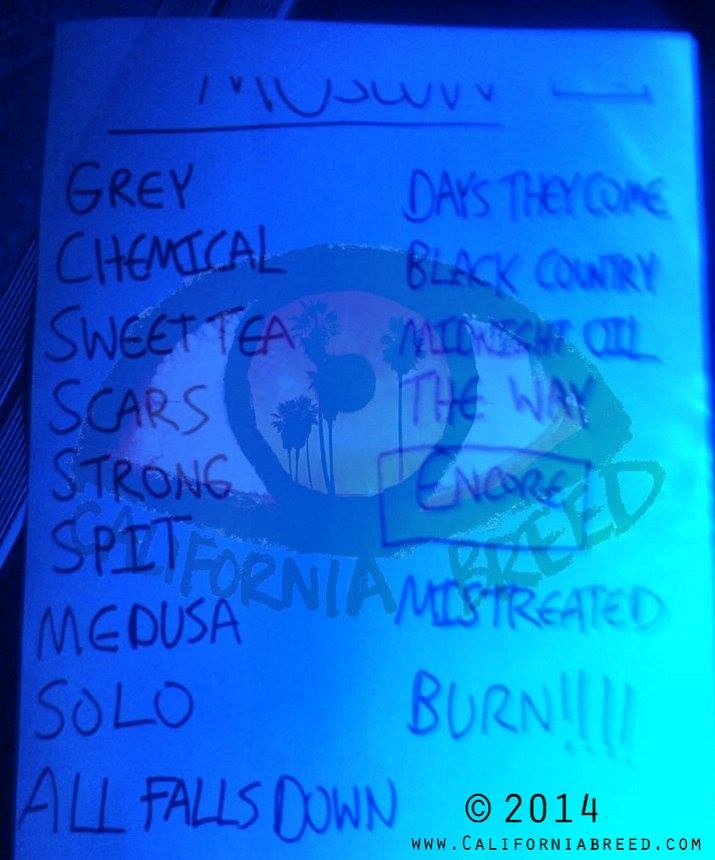 GREY
CHEMICAL
SWEET TEA
SCARS
STRONG
SPIT
MEDUSA
SOLO
ALL FALLS DOWN
DAYS THEY COME
BLACK COUNTRY
MIDNIGHT OIL
THE WAY
ENCORE
MISTREATED
BURN!!!!
CALIFORNIA BREED
© 2014
WWW.CALIFORNIABREED.COM